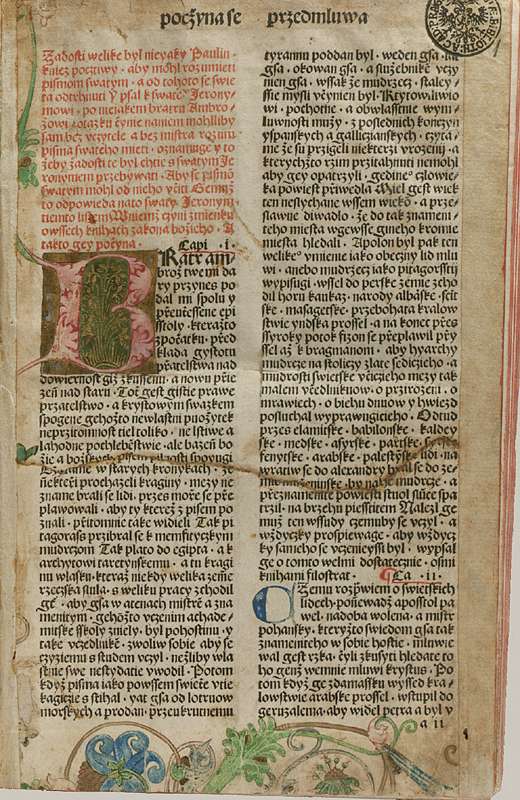 poczyna se przedmluwa
Zadosti welike był nieyaky Paulin
kniez pocztiwy · aby mohl rozumieti
pismom swatym · a od tohoto se swie
ta odtrhnuti Y psal k swate° Jerony
mowi · po niejakem bratru Ambro
zowi otazku čynie namem mohlliby
sam bez vcytele a bez mistra rozum
pisma swateho mieti · oznamuge y to
žeby žadosti te byl chtie s swatym Je
ronymem przebywati · Aby se pismo
swatym mohl od nieho včiti Gemuž
to odpowieda nato swaty Jeronym
tiemto listem
owssech knihach zakona božieho · A
takto gey počyna ·
Capi · i ·
Ratr am
brož twe mi da
ry przynes po
dal mi spolu y
przeutessene epi
sstoly · kteražto
zpočatku · przed
klada gystotu
przatelstwa nad
dowiernost giž zkussenu · a nowu přie
zeň nad staru · Toť gest gistie prawe
przatelstwo · a krystowym swazkem
spogene gehožto newlastni požytek
neprzitomnost tiel toliko · ne lstiwe a
lahodne pochlebnistwie · ale bazeň bo
žie a božskych pisem
w starych kronykach · že
niekteři prochazeli kraginy · mezy ne
zname brali se lidi · przes moře se pře
plawowali · aby ty kterež z pisem po
znali · přitomnie take widieli Tak pi
tagoras przibral se k memfitczkym
mudrczom Tak plato do egipta · a k
archytowi tarentynskemu · a tu kragi
nu wlasku · kteraž niekdy welika zeme
rzeczska slula · s weliku praczy zchodil
geť · aby gsa w atenach mistr a zna
menitym · gehožto vczenim achade
mitske sskoly zniely · byl pohostinu · y
take vczedlnike · zwoliw sobie aby se
czyziemu s studem vczyl · nežliby wla
stnie swe nestydatie vwodil · Potom
kdyz pisma jako powssem swietie vtie
kagicie s stihal · yat gsa od lotruow
morskych a prodan · przeukrutnemu
tyrannu poddan byl · weden gsa · iat
gsa · okowan gsa · a služebnik vczy
nien gsa · wssak že mudrzecz · staley
ssie mysli vczynien byl · K tytowi liwio
wi · pochotnie · a obwlasstnie wym
luwnosti muży · z poslednich konczyn
yspanskych a galliczianskych · czyta
me že su przigeli niekterzi vrozeni · a
kterychžto rzim przitahnuti nemohl
aby gey opatrzyli · gedine° czlowie
ka powiest přiwedla Miel gest wiek
ten neslychane wssem wiekom · a prze
slawne diwadlo · že do tak znameni
teho miesta wgewsse gineho kromie
miesta hledali · Apolon byl pak ten
welike° ymenie jako obeczny lid mlu
wi · anebo mudrzecz jako pitagorssti
wypisugi · wssel do perske zemie zcho
dil horu kaukaz · narody albanske · scit
ske · masagetske · przebohata kralow
stwie yndska prossel · a na konec přes
ssyroky potok fizon se přeplawil při
ssel až k bragmanom · aby hyarchy
mudrze na stolicy zlate sediczieho · a
mudrosti swietske včicieho mezy tak
malem včedlnikuow · o przirozeni · o
mrawiech · o biehu dniow y hwiezd
posluchal wyprawugicieho · Odtud
przes elamitske · babilonske · kaldey
ske · medske · asyrske · partske ·
fenytske · arabske · palestynske lidi · na
wratiw se do alexandry bral se do
mudrcze · a
přeznamenite powiesti stuol slunce spa
trzil · na brzehu piesscitem Nalezl ge
muž ten wssudy czemuby se vczyl · a
wždyczky prospiewage · aby wždycz
ky sameho se vczenieyssi byl · wypsal
ge o tomto welmi dostatecznie · osmi
knihami filostrat · Ca · ii ·
Czemu rozprawiem o swietskich
lidech · ponewadž apostol pa
wel · nadoba wolena · a mistr
pohansky · kteryžto swiedom gsa tak
znameniteho w sobie hostie · mluwie
wal gest rzka · čyli zkusyti hledate to
ho genž wemnie mluwi krystus · Po
tom kdyz ge zdamassku wyssed kra
lowstwie arabske prossel · wstupil do
geruzalema · aby widel petra a byl v
a ii